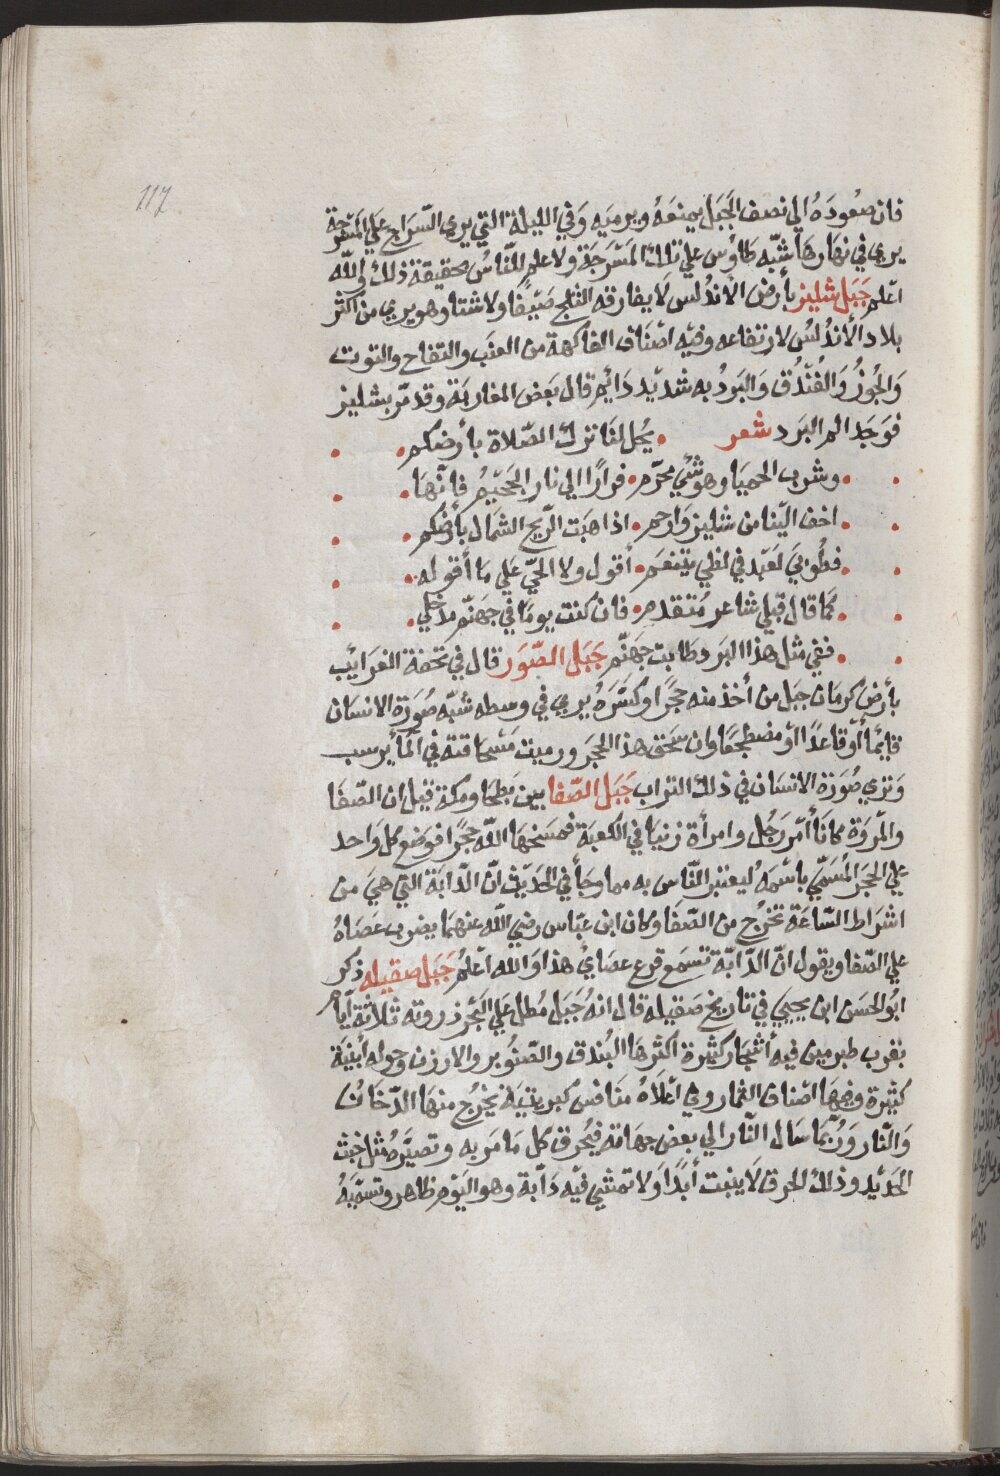 117
فان صعُودَهُ الي نصف الجَبَل يمنعَهُ ويرميَه وَفي الليلة التي يري السّرَاج عَلي المسْرجَة
يري في نهارهَا شبّه طاوُس علي تلك المَسْرَجَة ولا علم للنّاسُ بحقيقة ذلك والله
اعلم جَبَل شلير بأرض الأندُلس لا يفارقه الثلج صَيْفًا ولا شتا وهو يري من اكثر
بلاد الأندُلسُ لارتفاعه وفيْه اصْنَاف الفاكهة من العنَب والتفاح والتوت
وَالجُوزُ وَالفُنْدُق وَالبَردُ به شديْد دَائم قال بَعَض المغاربَة وقد مّر بشلير
فوَجَد الم البَرد شعر • يحُل لنَا ترك الصّلاة بأرضكم •
• وشرب الحميَا وهو شئي محرّم • فرارًا الي نار الجَحيْمُ فانّهَا •
• اخف اليّنا من شلير وَارحم • اذا هبَت الرّيح الشمَال بأرضكم •
• فطُوبيَ لعَبْد في لظي يتنعَم • أقول ولا الحيّ عَلي مَا أقوله •
• كمَا قال قبلي شاعر مُتقدم • فان كنت يومَا في جَهنّم مدخلي •
• ففي مثل هذا البرد طابت جَهنّم جَبَل الصّوَر قال في تحفة الغرَايَب
بأرض كرمان جبل من أخذ منه حجَرًا وكسَّرَهُ يري في وسطه شبّه صُوَرَة الانسَان
قايمًا أوقاعَدًا اوْ مضطجعًا وان سَحق هذ الحجَر ورميت مَسْحَاقتة في المأ يرسب
وَتري صُوَرَة الانسَان في ذلك التراب جَبَل الصّفا بين بَطحَا ومكة قيل ان الصّفَا
والمرْوَة كانا أمر رَجُل وامرأة زنيَا في الكعبَة فمسَخهَا الله حجَرًا فوضَع كل وَاحد
علي الحجَر المُسَمّي باسْمهَ ليعتبر النّاس به مما وجَأ في الحَديْث انّ الدّابَة التي هيَ من
اشرَاط السّاعَة تخرُج من الصّفَا وكان ابن عبّاس رضي الله عنهما يضرب عصَاهُ
علي الصّفا ويقول انّ الدّابّة تسْمَع قرع عصَاي هذا وَالله اعْلمُ جَبَل صقيله ذكر
ابُو الحسَن ابن يحيي في تاريخ صَقيله قال انهُ جَبَل مُطل عَلي البَحْر ذروته ثلاثة أيّام
بقرب طبرمين فيه أشجَار كثيرة أكثرهَا البُندق والصّنوُبر والارزن وحوله أبنيَة
كثيرة وفيهَا اصْناف الثمار وفي اعْلاهُ مَنافس كبريتيَة يخرُج منهَا الدّخَانُ
وَالنّار وَرُبَّمَا سَال النّار الي بعض جهاتة فيُحرق كل مَا مَر به وتصيَّرَهُ مثل خبث
الحَديْد وذلك الحرق لاَ ينبت أبَدًا وَلا تمشي فيْه دَابّة وهو اليَوْم ظاهر وتسمّيَهُ